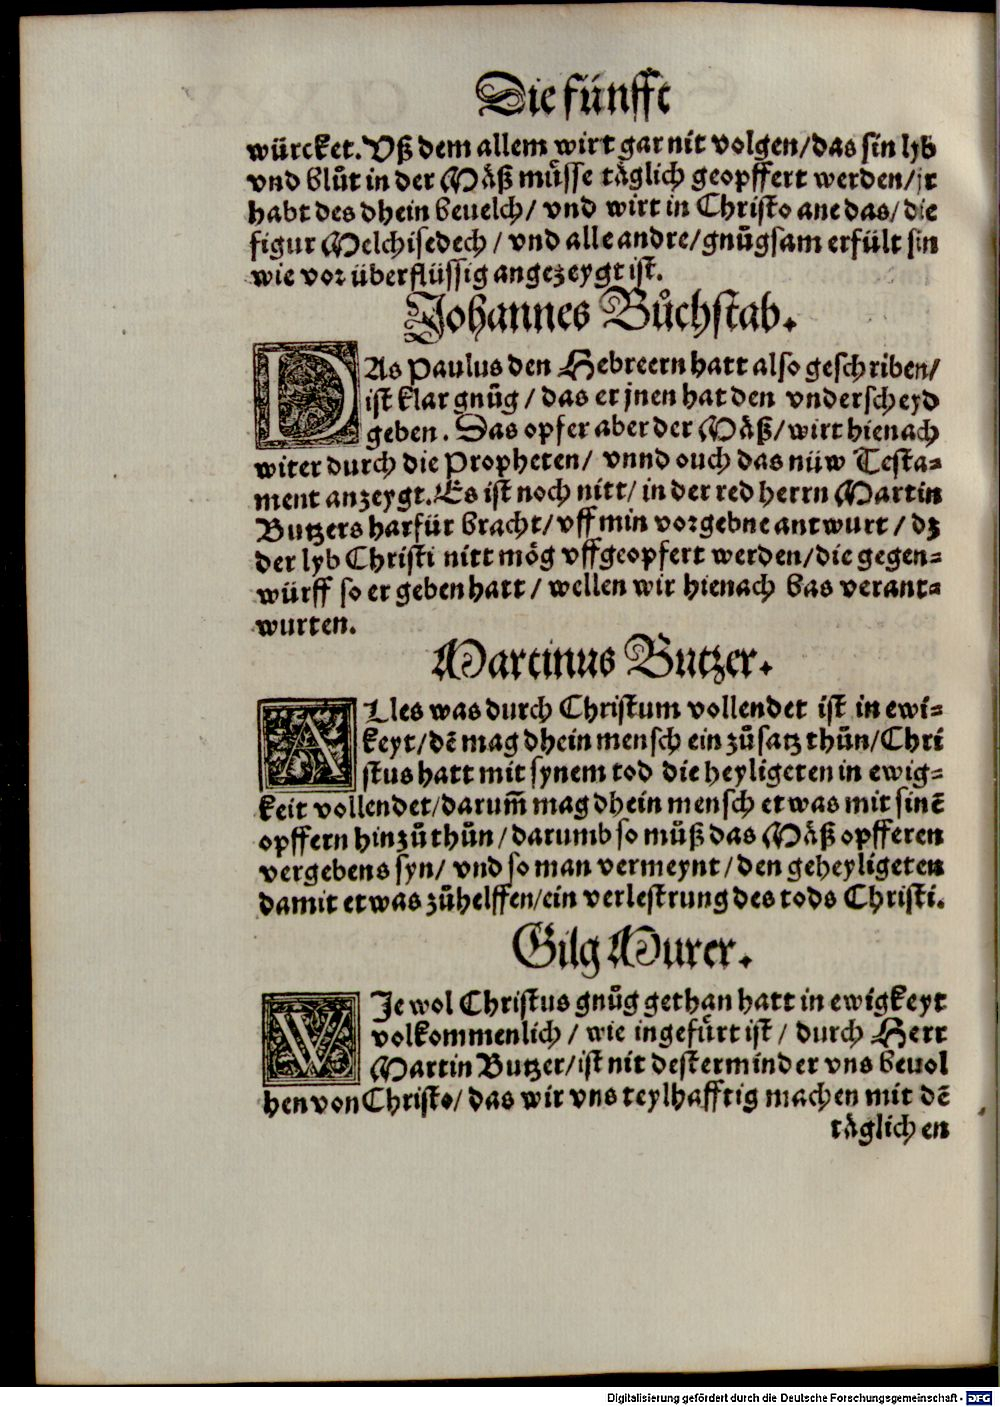 Die fünfft
würcket. Vß dem allem wirt gar nit volgen/das sin lyb
vnd blůt in der Mäß müsse täglich geopffert werden/jr
habt des dhein beuelch/ vnd wirt in Christo ane das/die
figur Melchisedech/ vnd alle andre/gnůgsam erfült sin
wie vor überflüssig angezeygt ist.
Johannes Bůchstab.
DAs Paulus den Hebreern hatt also geschriben/
ist klar gnůg/ das er jnen hat den vnderscheyd
geben. Das opfer aber der Mäß/wirt hienach
witer durch die Propheten/ vnnd ouch das nüw Testa⸗
ment anzeygt. Es ist noch nitt/ in der red herrn Martin
Butzers harfür bracht/vff min vorgebne antwurt/ dz
der lyb Christi nitt mög vffgeopfert werden/die gegen⸗
würff so er geben hatt/ wellen wir hienach bas verant⸗
wurten.
Martinus Butzer.
ALles was durch Christum vollendet ist in ewi⸗
keyt/dē mag dhein mensch ein zůsatz thůn/Chri
stus hatt mit synem tod die heyligeten in ewig⸗
keit vollendet/darum̄ mag dhein mensch etwas mit sinē
opffern hinzůthůn/darumb so můß das Mäß opfferen
vergebens syn/ vnd so man vermeynt/den geheyligeten
damit etwas zůhelffen/ein verlestrung des tods Christi.
Gilg Murer.
WIe wol Christus gnůg gethan hatt in ewigkeyt
volkommenlich/ wie ingefürt ist/ durch Herr
Martin Butzer/ist nit dester minder vns beuol
hen von Christo/das wir vns teylhafftig machen mit dē
täglichen
Digitalisierung gefördert durch die Deutsche Forschungsgemeinschaft - DFG